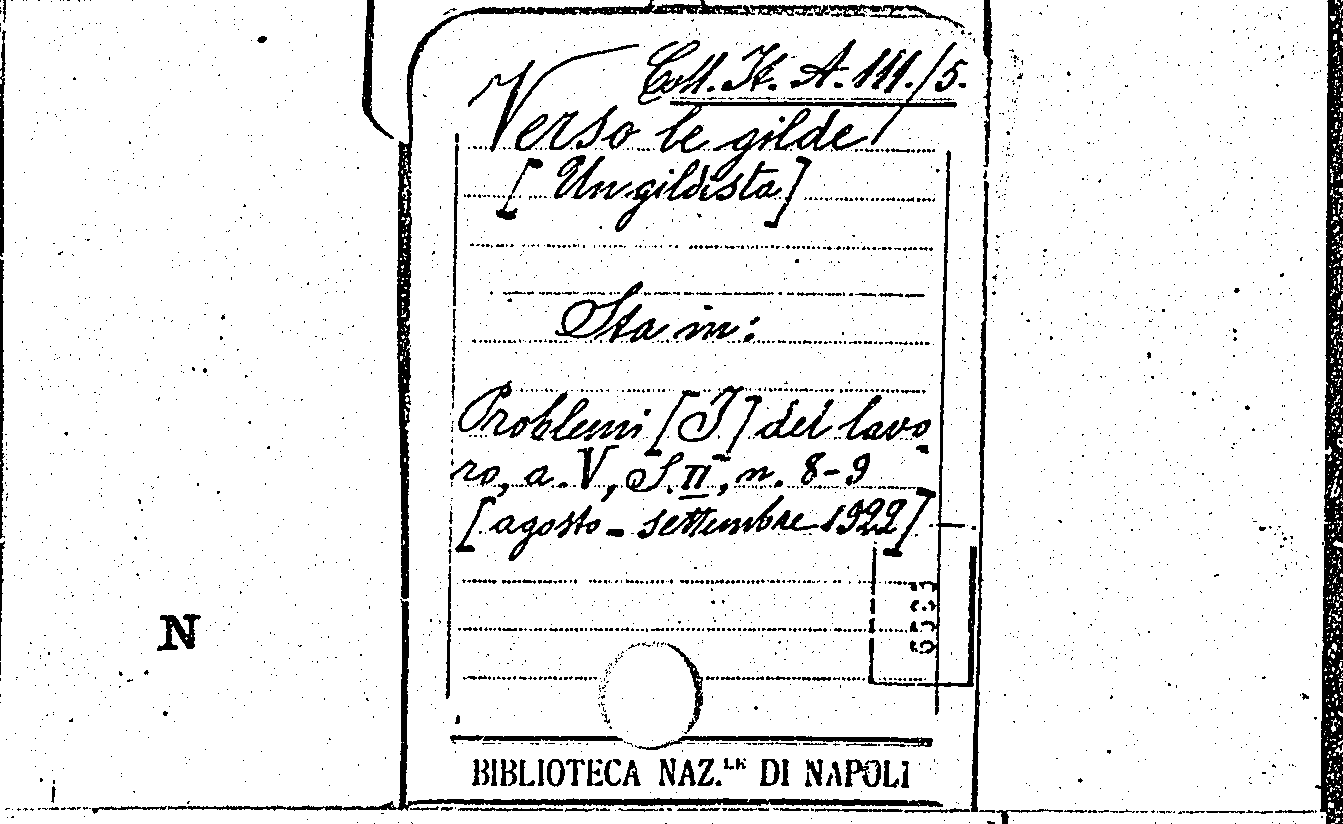 Coll. It. A. 111./5.
Verso le gilde
[Un gildista]
Sta in:
Problemi [I] del lavo-
ro, a. V, S. II, n. 8-9
[agosto-settembre 1922]
BIBLIOTECA NAZ.LE DI NAPOLI
N